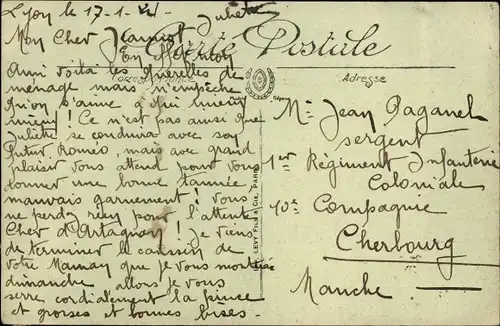 Lyon le 17-1-
Juliette
Mon Cher
Carte Postale
Correspondance
Adresse
Ainsi voilà les querelles de
ménage mais n'empêche
qu'on s'aime à qui mieux
mieux! Ce n'est pas ainsi que
Juliette se conduira avec son
futur Roméo, mais avec grand
plaisir vous attend pour vous
donner une bonne tannée,
mauvais garnement! vous
ne perdez rien pour l'attente
Cher d'Artagnan! Je viens
de terminer le coussin de
votre Maman que je vous montrerai
dimanche allons je vous
serre cordialement la pince
et grosses et bonnes bises-
LEVY FILS & Cie, PARIS
Mr Jean Paganel
sergent
1er Régiment Infanterie
Coloniale
10e Compagnie
Cherbourg
Manche